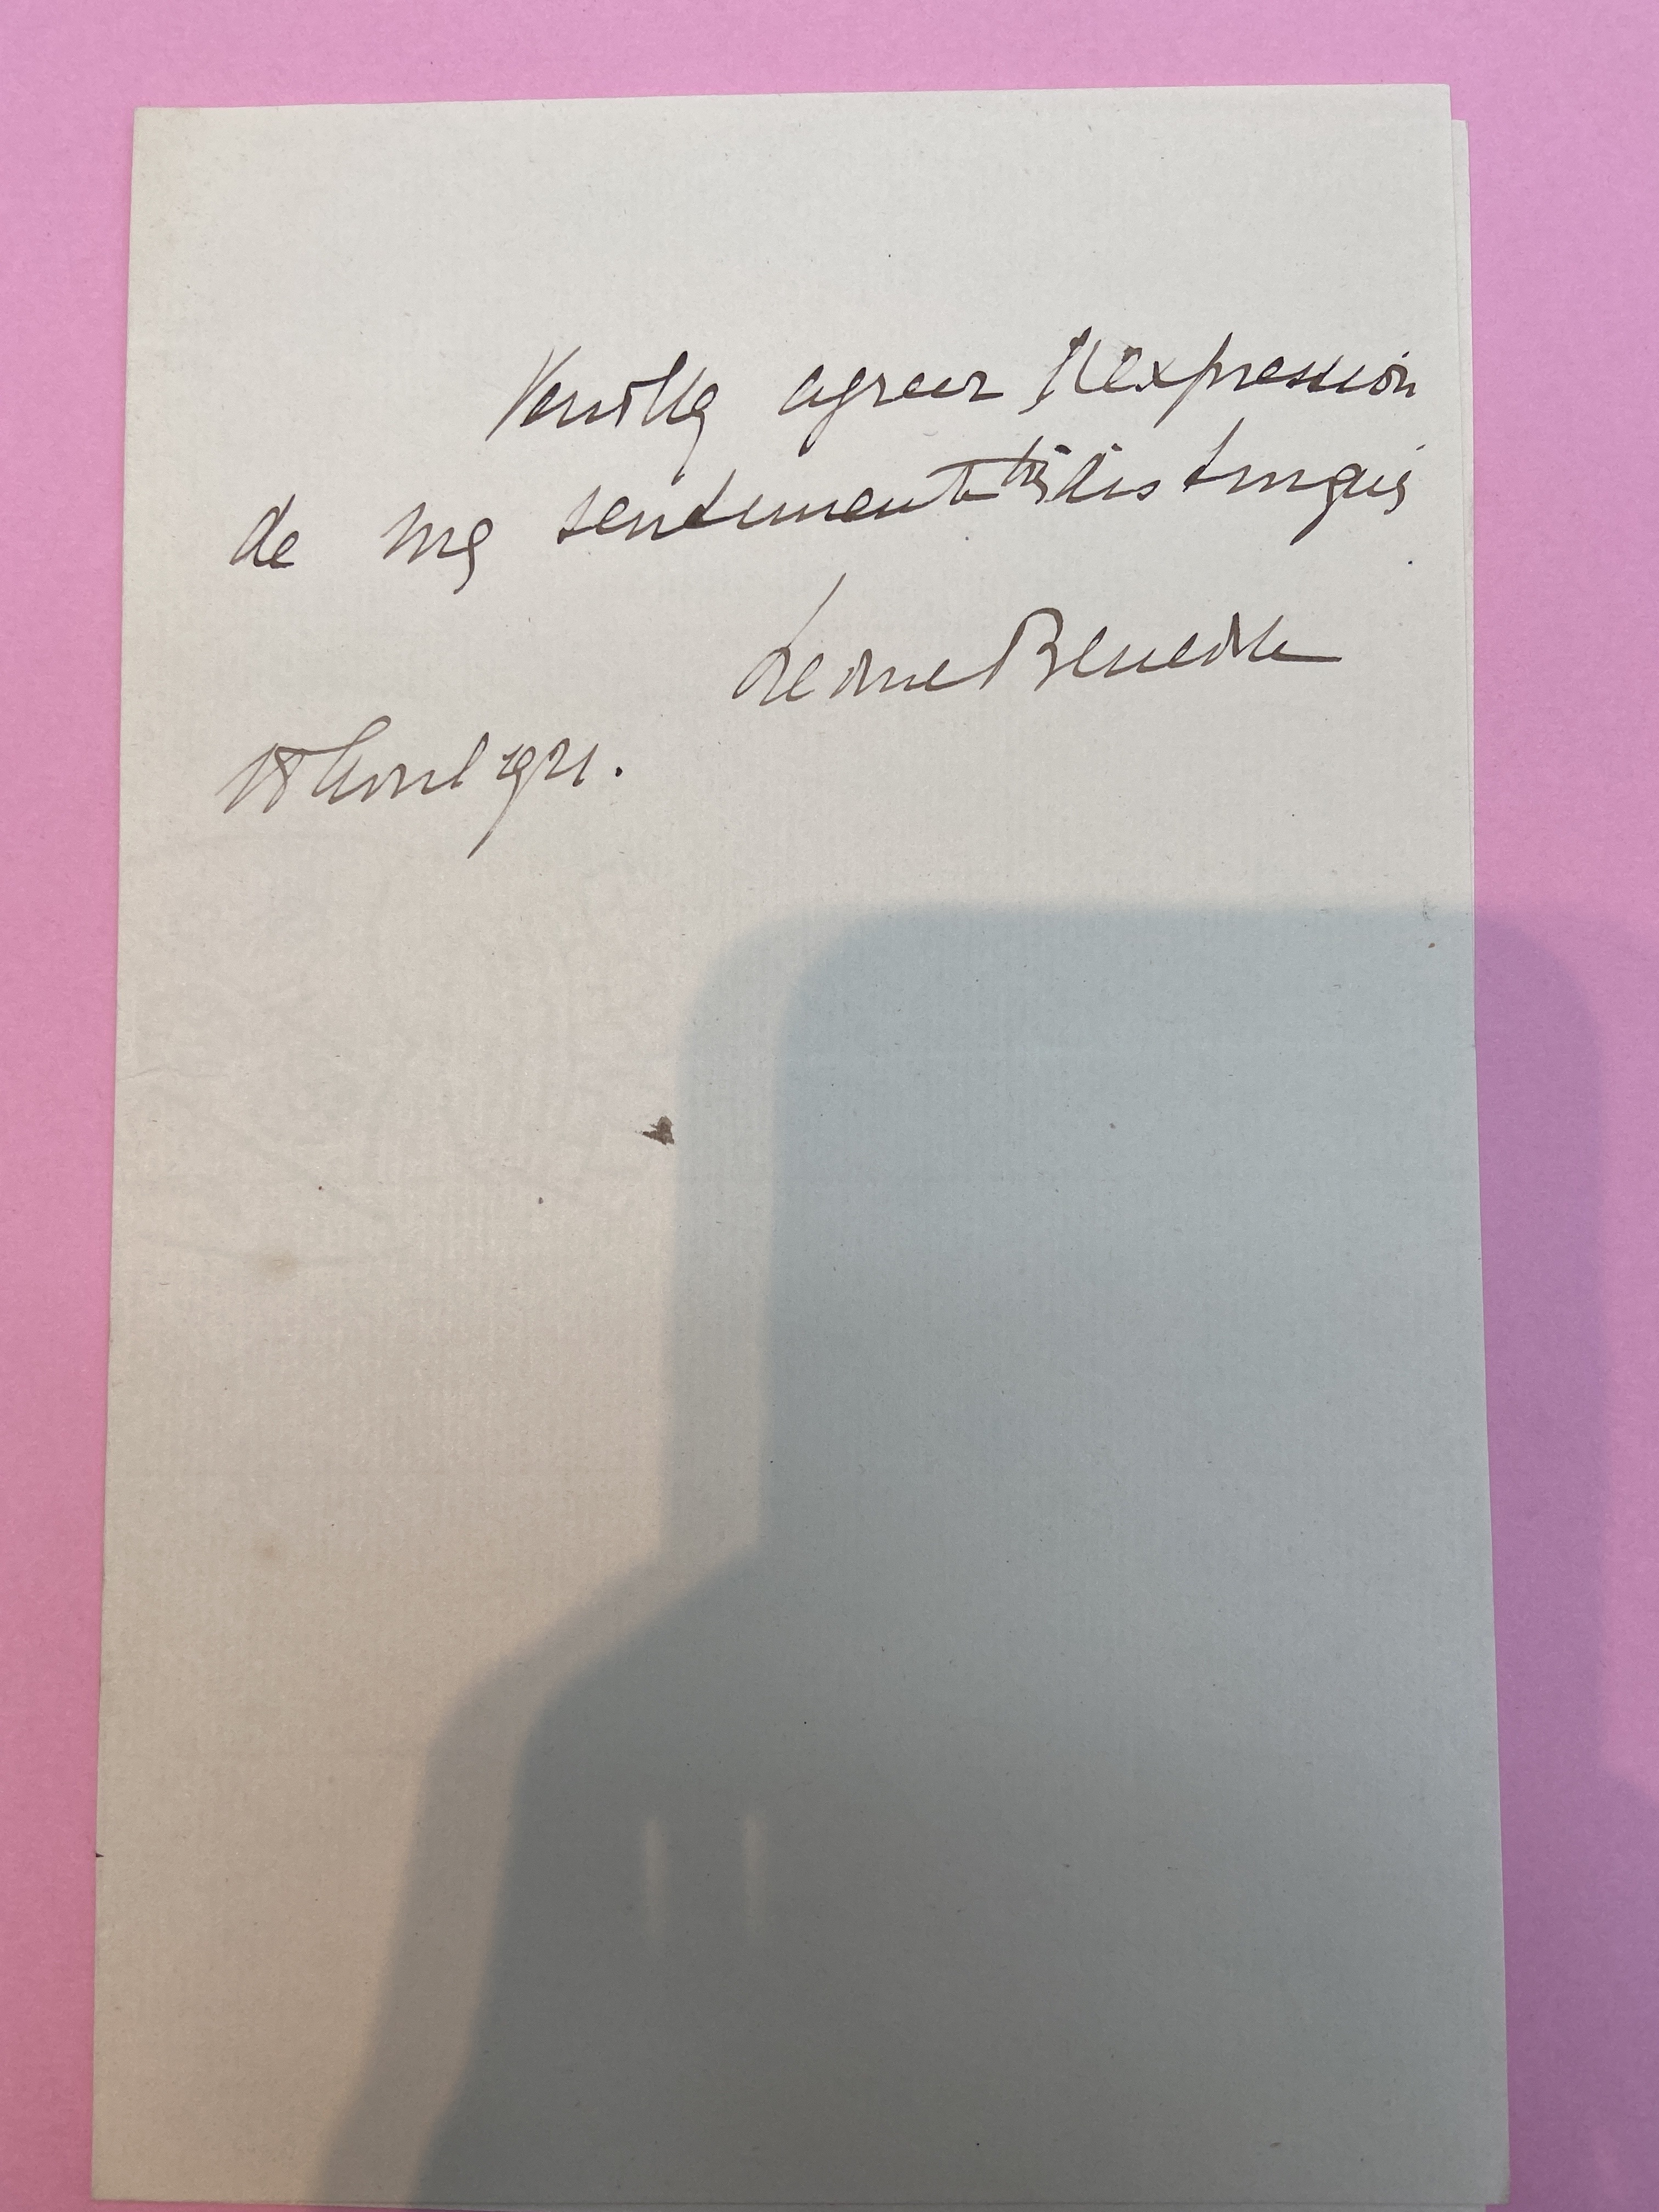 Veuillez agreer l'expression
de mes sentiments très distingués
Leonce Benedite
18 Avril 1921.